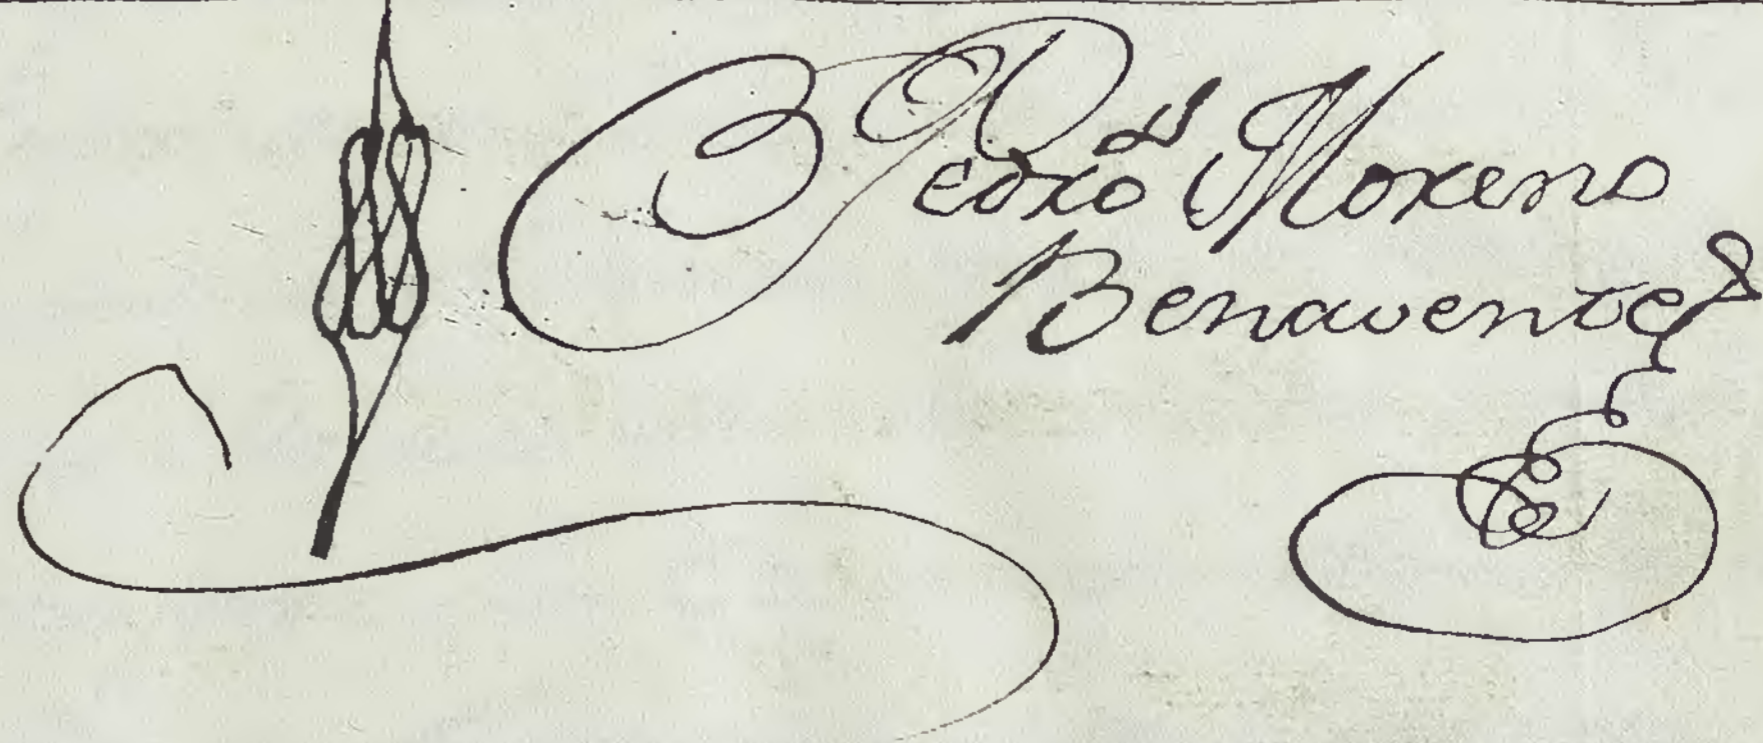 Pedro Moreno
Benavente